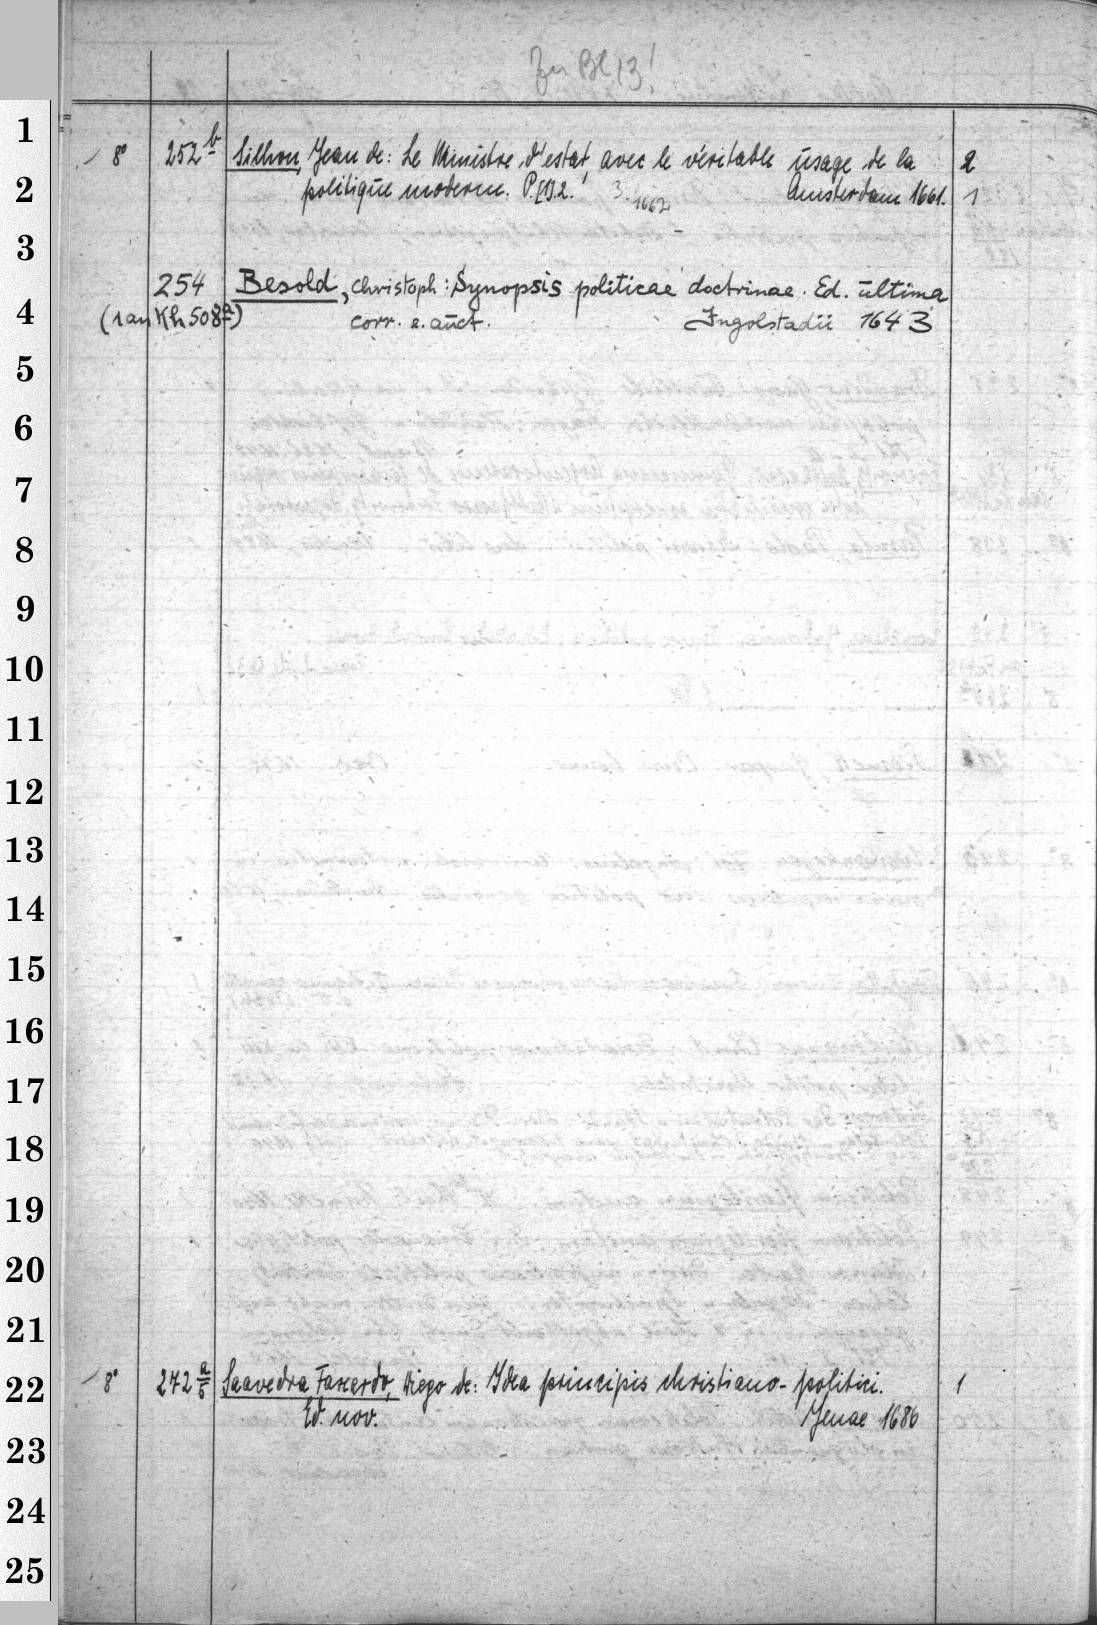 Zu Bl 13!
1
8° 252 b Silhon, Jean de: Le Ministre d'estat, avec le véritable usage de la 2
2
politique moderne. P. [1]. 2. 3. 1662 Amsterdam 1661. 1
3
254 Besold, Christoph: Synopsis politicae doctrinae. Ed. ultima
4
(1 an Kh 508 a) corr. e. auct. Ingolstadii 1643
5
6
7
8
9
10
11
12
13
14
15
16
17
18
19
20
21
22
8° 242 a/b Saavedra Faxardo, Diego de: Idea principis christiano-politici. 1
Ed. nov. Jenae 1686
23
24
25